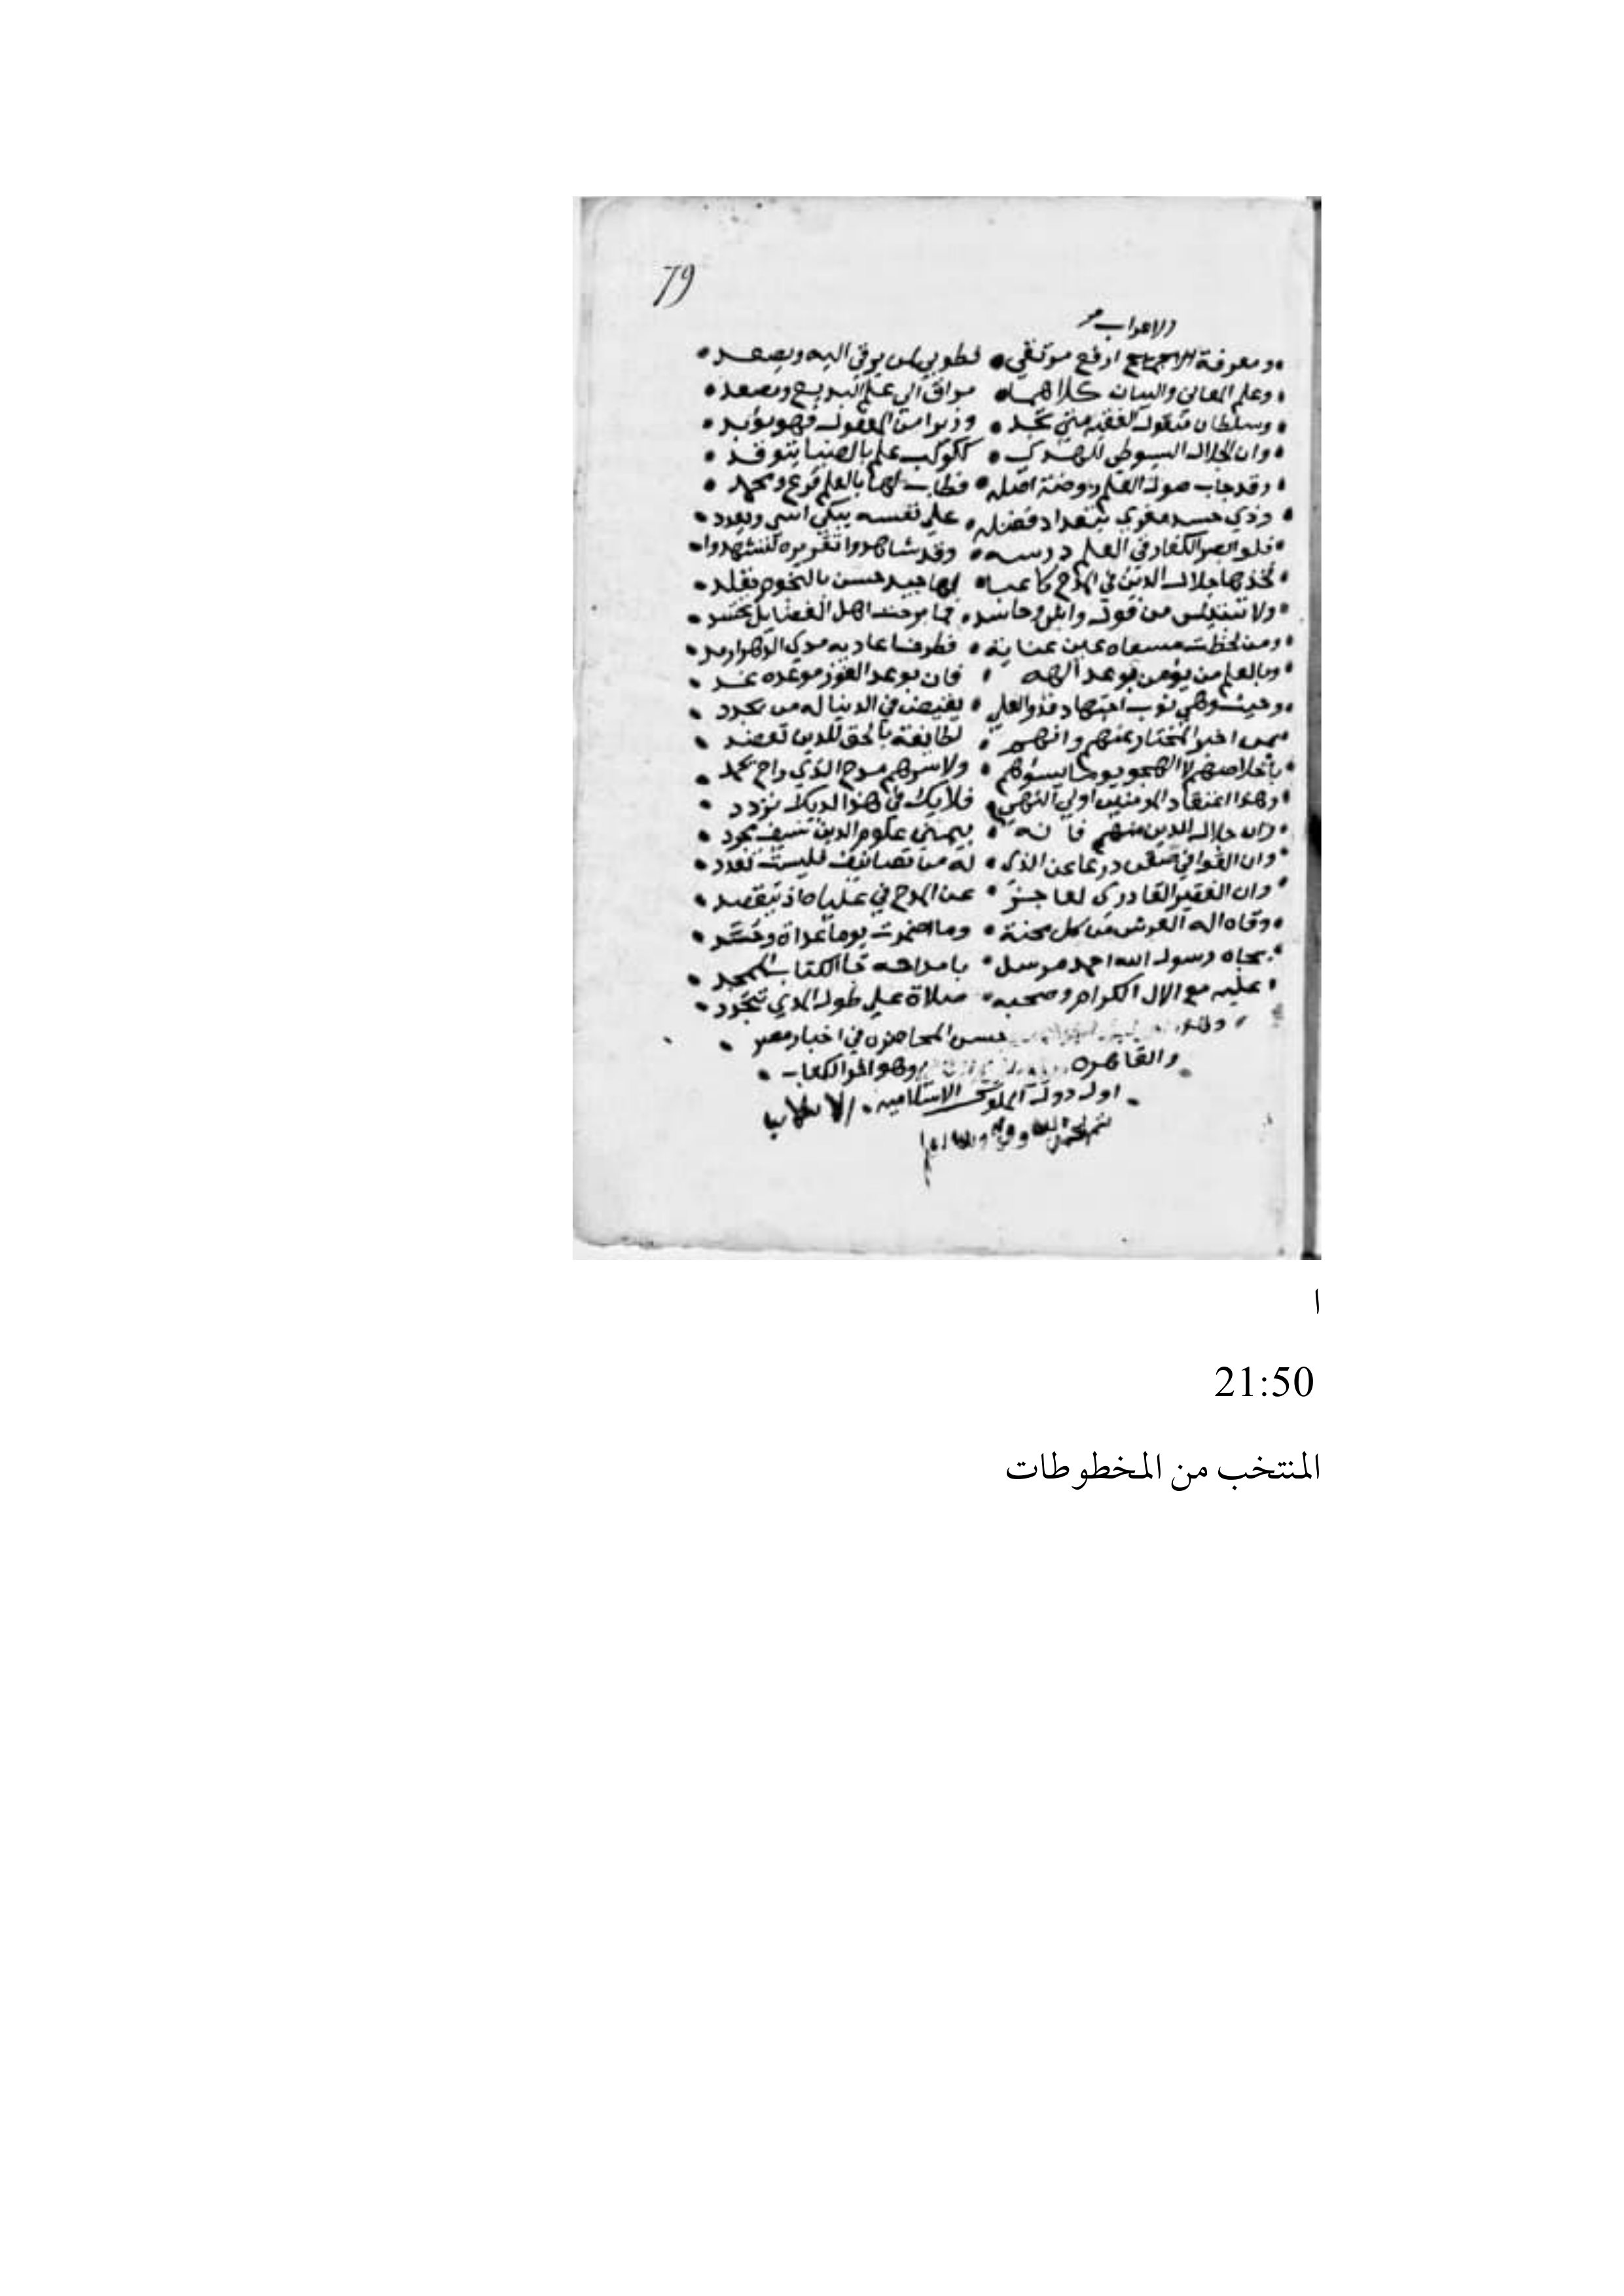 79
الاعراب
ومعرفة ارفع مرتقي فطوبي لمن يرقي اليه ويصعد
وعلم المعاني والبيان كلاهما مراق الي علم البديع ومصعد
وسلطان منقول الفقيه متي يجد وزيرا من المعقول فهو مؤيد
وان الجلال السيوطي للهدي ككوكب علم بالضيا يتوقد
وقد جاب صول العلم روضة اصله فطاب لها بالعلم فرع ومحمد
وذي حسد مغري بتعداد فضله علي نفسه يبكي اسي ويعدد
فلو ابصر الكفار في العلم درسه وقد شاهدوا تقريره لتشهدوا
فخذها جلال الدين في المدح كاعبا لها جيد حسن بالنجوم يقلد
ولا تبتئس من قول واش وحاسد فما برحت اهل الفضايل تحسد
ومن لحظت مسعاه عين عناية فطرف اعاديه مدي الدهر ارمد
وبالعلم من يؤمن بوعد الهه فان بوعد الفوز موعده غد
وحيث وهي ثوب اجتهاد فذو العلي يقيض في الدنيا له من يجدد
بمن اخبر المختار عنهم وانهم لطايفة بالحق للدين تعضد
باخلاصهم لا الهجو يوما يسؤهم ولا سرهم مدح الذي راح يحمد
وهذا اعتقاد المؤمنين اولي النهي فلا يك في هذا لديك تردد
وان جلال الدين منهم فانه بيمني علوم الدين سيف مجرد
وان القوافي ضقن درعا عن الذي له من تصانيف فليست تعدد
وان الفقير القادري لعاجز عن المدح في علياه اذ يتقصد
وقاه اله العرش من كل محنة وما اضمرت يوما عداه وحسد
بجاه رسول الله احمد مرسل بامداحه جا الكتاب الممجد
عليه مع الال الكرام وصحبه صلاة علي طول المدي تتجدد
حسن المحاضره في اخبار مصر
والقاهره وهو اخر الكتاب
اول دولة الاسلاميه
ا
21:50
المنتخب من المخطوطات